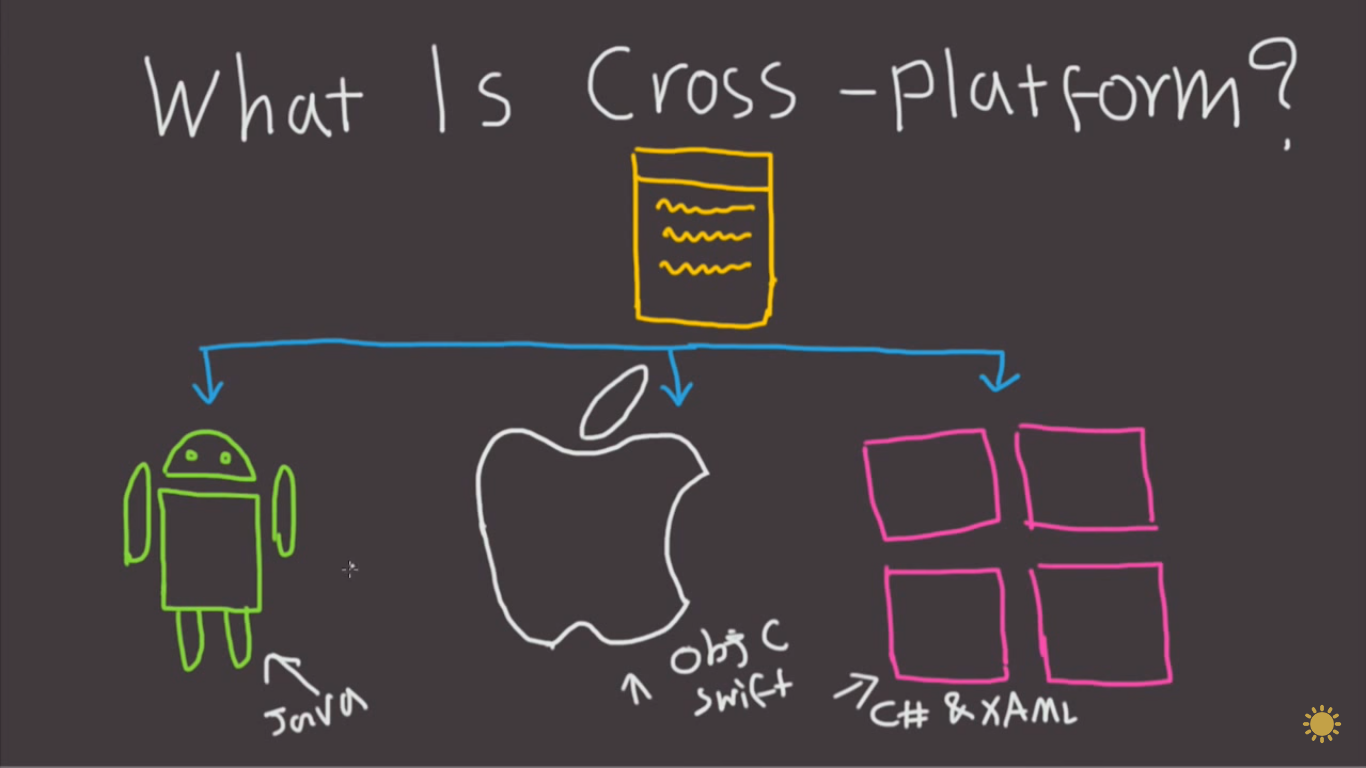 What Is Cross-platform?
Java
Obj C
swift
C# & XAML